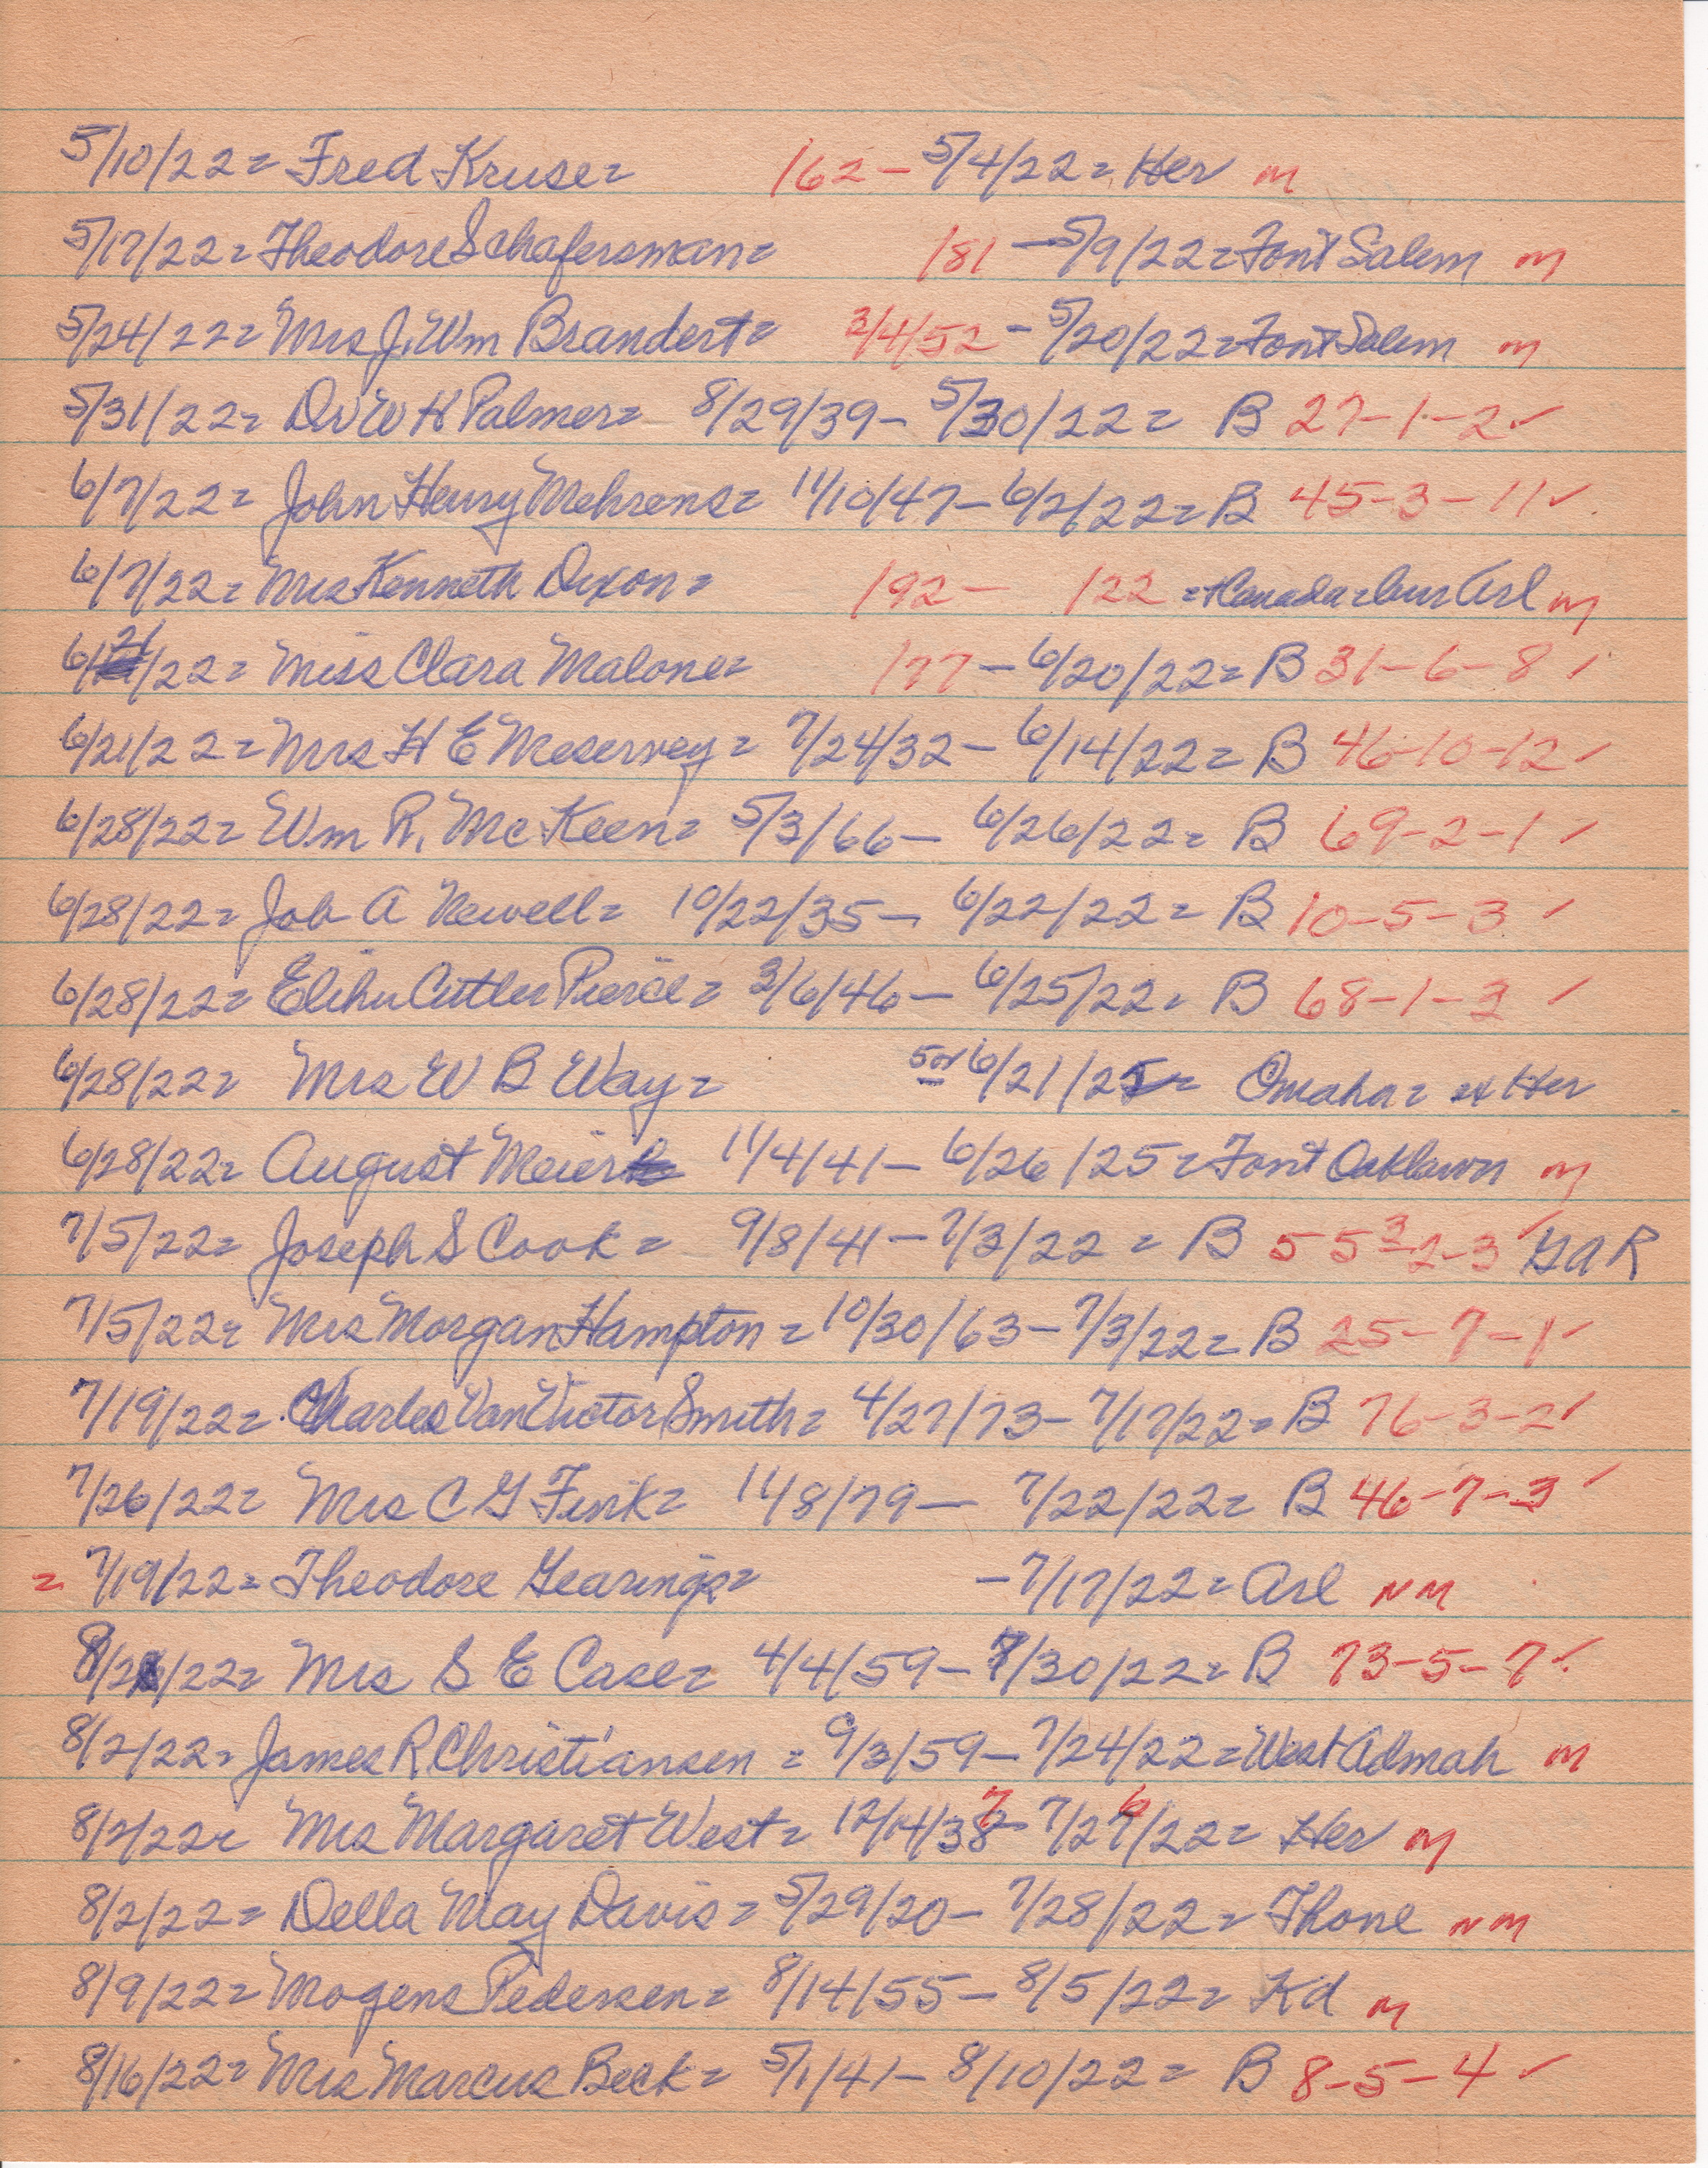 5/10/22= Fred Kruse= 162 - 5/4/22= Her m
5/17/22= Theodore Schafersman= 181 - 5/9/22= Font Salem m
5/24/22= Mrs J. Wm Brandert= 3/4/52 - 5/20/22= Font Salem m
5/31/22= Dr W H Palmer= 8/29/39 - 5/30/22= B 27-1-2 ✓
6/7/22= John Henry Mehrens= 11/10/47 - 6/2/22= B 45-3-11 ✓
6/7/22= Mrs Kenneth Dixon= 192 - 122 = Arl m
6/21/22= Miss Clara Malone= 177 - 6/20/22= B 31-6-8 ✓
6/21/22= Mrs H E Meservey= 7/24/32 - 6/14/22= B 46-10-12 ✓
6/28/22= Wm R. McKeen= 5/3/66 - 6/26/22= B 69-2-1 ✓
6/28/22= Job A Newell= 10/22/35 - 6/22/22= B 10-5-3 ✓
6/28/22= Elihu Cutler Pierce= 3/6/46 - 6/25/22= B 68-1-3 ✓
6/28/22= Mrs W B Way= 5 or 6/21/25= Omaha= Her
6/28/22= August Meier 11/4/41 - 6/26/25= Font Oaklawn m
7/5/22= Joseph S Cook= 9/8/41 - 7/3/22= B 55 3-2-3 ✓ GAR
7/5/22= Mrs Morgan Hampton= 10/30/63 - 7/3/22= B 25-7-1 ✓
7/19/22= Charles Van Victor Smith= 4/27/73 - 7/17/22= B 76-3-2 ✓
7/26/22= Mrs C G Fink= 11/8/79 - 7/22/22= B 46-7-3 ✓
= 7/19/22= Theodore Gearing= - 7/17/22= Arl NM
8/2/22= Mrs S E Case= 4/4/59 - 7/30/22= B 73-5-7 ✓
8/2/22= James R Christiansen= 9/3/59 - 7/24/22= West Admah m
8/2/22= Mrs Margaret West= 12/14/38 7 - 7/29 6/22= Her m
8/2/22= Della May Davis= 5/29/20 - 7/28/22= Thone NM
8/9/22= Mogens Pedersen= 8/14/55 - 8/5/22= Kd m
8/16/22= Mrs Marcus Beck= 5/1/41 - 8/10/22= B 8-5-4 ✓